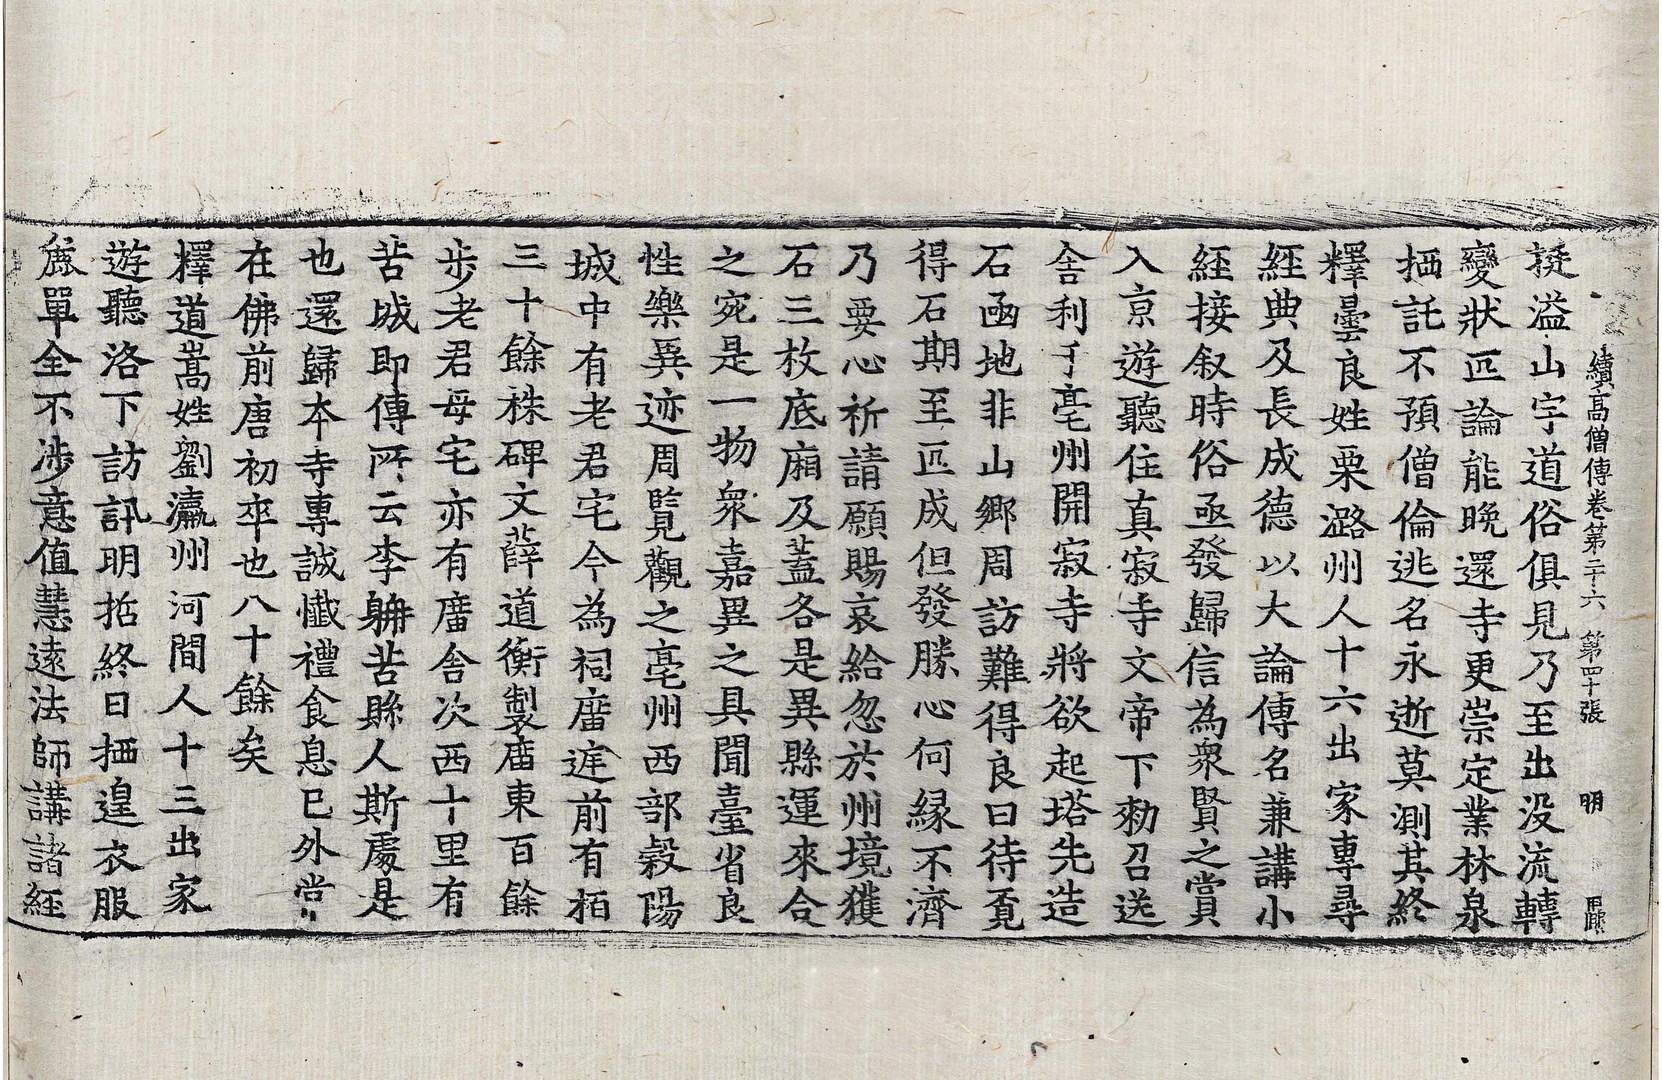 續高僧傳卷第二十六 第四十張 明
溢山宇道俗俱見乃至出没流轉
變狀叵論能晩還寺更崇定業林泉
栖託不預僧倫逃名永逝莫測其終
釋曇良姓栗潞州人十六出家專尋
經典及長成德以大論傳名兼講小
經接叙時俗亟發歸信為衆賢之賞
入京遊聽住真寂寺文帝下勑召送
舍利于亳州開寂寺將欲起塔先造
石函地非山鄉周訪難得良曰待覔
得石期至叵成但發勝心何縁不濟
乃要心祈請願賜哀給忽於州境獲
石三枚底廂及蓋各是異縣運來合
之宛是一物衆嘉異之具聞臺省良
性樂異迹周覧觀之亳州西部榖陽
城中有老君宅今為祠庿逬前有栢
三十餘株碑文薛道衡製庿東百餘
步老君母宅亦有庿舍次西十里有
苦城即傳所云李躭苦縣人斯處是
也還歸本寺專誠懺禮食息已外常
在佛前唐初卒也八十餘矣
釋道嵩姓劉瀛州河間人十三出家
遊聽洛下訪訊明哲終日栖遑衣服
麁單全不涉意值慧遠法師講諸經